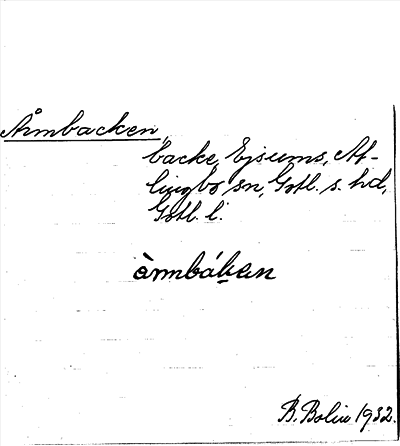 Årmbacken,
backe, Ejsums, At-
lingbo sn, Gotl. s. hd,
Gotl. l.
àrmbákan
B. Bolin 1932.